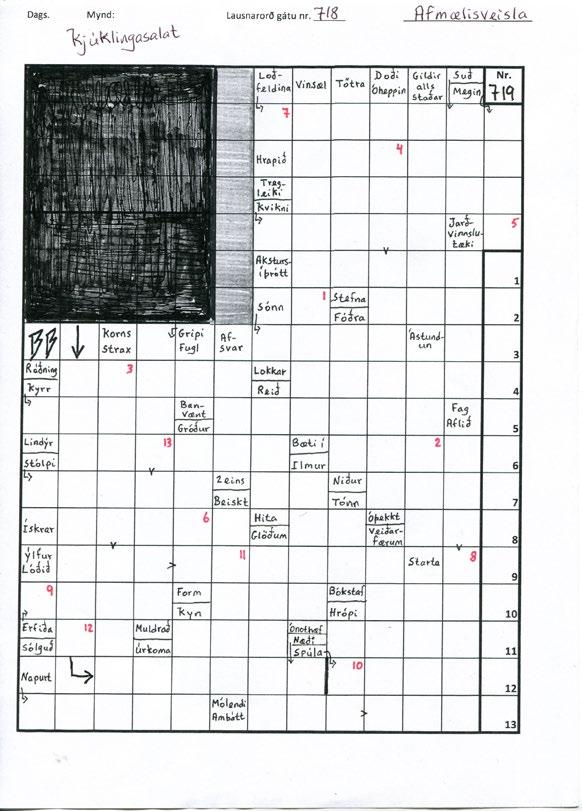 Dags. Mynd: Lausnarorð gátu nr. 718 Afmælisveisla
Kjúklingasalat
Loð-
feldina
Vinsæl
Tötra
Doði
Óheppin
Gildir
alls
staðar
Suð
Megin
Nr.
719
7
Hrapið
4
Treg-
leiki
Kvikni
Jarð-
vinnslu-
tæki
5
Aksturs-
íþrótt
1
Sónn
1
Stefna
Fóðra
2
BB
Korns
Strax
Gripi
Fugl
Af-
svar
Ástund-
un
3
Ráðning
Kyrr
3
Lokkar
Reið
4
Ban-
vænt
Gróður
Fag
Aflið
5
Lindýr
Stólpi
13
Bæti í
Ilmur
2
6
2 eins
Beiskt
Niður
Tónn
7
Ískrar
6
Hita
Glöðum
Óþekkt
Veiðar-
færum
8
Ýlfur
Lóðið
11
Starta
8
9
9
Form
Kyn
Bókstaf
Hrópi
10
Erfiða
Sólguð
12
Muldrað
Úrkoma
Ónothæf
Næði
Spúla
11
Napurt
10
12
Mólendi
Ambátt
13